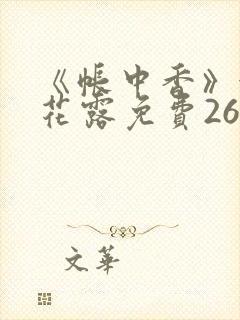 《帐中香》
花露免費26
文華